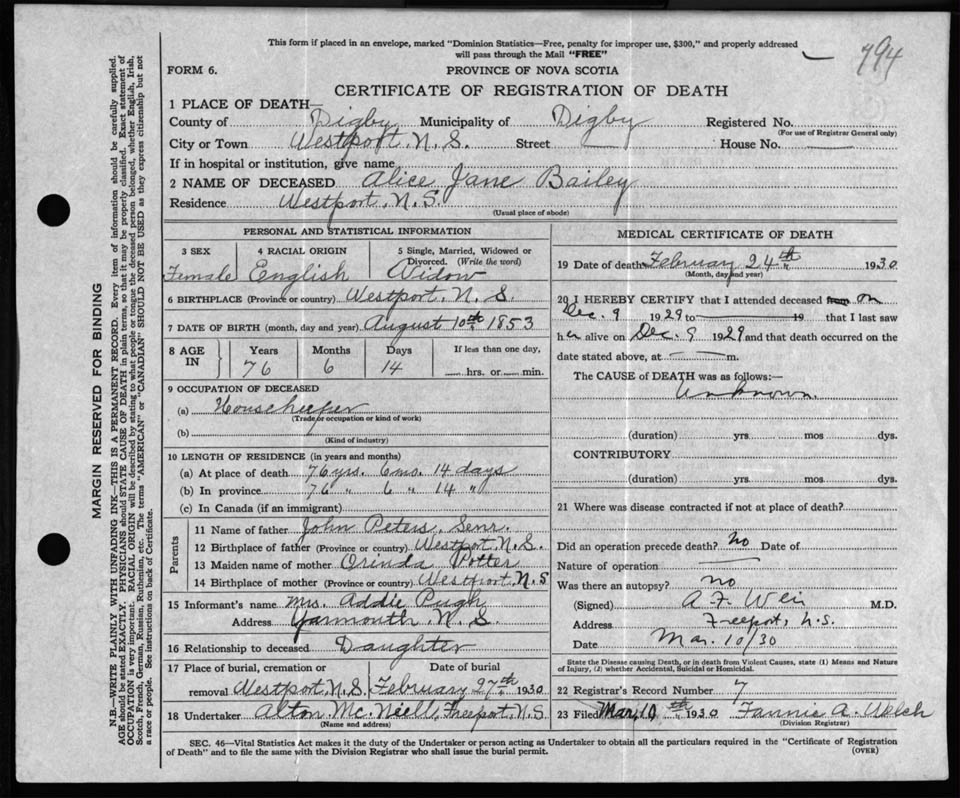 This form if placed in an envelope, marked "Dominion Statistics—Free, penalty for improper use, $300," and properly addressed
will pass through the Mail "FREE"
794
FORM 6.
PROVINCE OF NOVA SCOTIA
CERTIFICATE OF REGISTRATION OF DEATH
1 PLACE OF DEATH—
County of Digby Municipality of Digby Registered No.
(For use of Registrar General only)
City or Town Westport, N. S. Street — House No. —
If in hospital or institution, give name
2 NAME OF DECEASED Alice Jane Bailey
Residence Westport, N. S.
(Usual place of abode)
PERSONAL AND STATISTICAL INFORMATION
3 SEX 4 RACIAL ORIGIN 5 Single, Married, Widowed or
Divorced. (Write the word)
Female English Widow
6 BIRTHPLACE (Province or country) Westport, N. S.
7 DATE OF BIRTH (month, day and year) August 10th 1853
8 AGE IN Years Months Days If less than one day,
76 6 14 hrs. or min.
9 OCCUPATION OF DECEASED
(a) Housekeeper
(Trade or occupation or kind of work)
(b)
(Kind of industry)
10 LENGTH OF RESIDENCE (in years and months)
(a) At place of death 76 yrs. 6 mo. 14 days
(b) In province 76 " 6 " 14 "
(c) In Canada (if an immigrant)
Parents
11 Name of father John Peters, Senr.
12 Birthplace of father (Province or country) Westport, N. S.
13 Maiden name of mother Orinda Potter
14 Birthplace of mother (Province or country) Westport, N. S
15 Informant's name Mrs. Addie Pugh
Address Yarmouth, N. S.
16 Relationship to deceased Daughter
17 Place of burial, cremation or Date of burial
removal Westport, N. S. February 27th 1930
18 Undertaker Alton McNeill, Freeport, N. S.
(Name and address)
MEDICAL CERTIFICATE OF DEATH
19 Date of death February 24th 1930
(Month, day and year)
20 I HEREBY CERTIFY that I attended deceased from on
Dec. 9 1929 to — 19 that I last saw
h alive on Dec. 9 1929 and that death occurred on the
date stated above, at — m.
The CAUSE of DEATH was as follows:—
Unknown.
(duration) yrs. mos dys.
CONTRIBUTORY
(duration) yrs. mos. dys.
21 Where was disease contracted if not at place of death?
Did an operation precede death? No Date of
Nature of operation —
Was there an autopsy? no
(Signed) A. F. Weir M.D.
Address Freeport, N.S.
Date Mar. 10/30
State the Disease causing Death, or in death from Violent Causes, state (1) Means and Nature
of Injury, (2) whether Accidental, Suicidal or Homicidal.
22 Registrar's Record Number 7
23 Filed Mar. 10th 1930 Fannie A. Welch
(Division Registrar)
SEC. 46—Vital Statistics Act makes it the duty of the Undertaker or person acting as Undertaker to obtain all the particulars required in the "Certificate of Registration
of Death" and to file the same with the Division Registrar who shall issue the burial permit.
(OVER)
MARGIN RESERVED FOR BINDING
N.B.—WRITE PLAINLY WITH UNFADING INK—THIS IS A PERMANENT RECORD. Every item of information should be carefully supplied.
AGE should be stated EXACTLY. PHYSICIANS should STATE CAUSE OF DEATH in plain terms, so that it may be properly classified. Exact statement of
OCCUPATION is very important. RACIAL ORIGIN will be described by stating to what people or tongue the deceased person belonged, whether English, Irish,
Scotch, French, German, Russian, Ruthenian, etc. The terms "AMERICAN" or "CANADIAN" SHOULD NOT BE USED as they express citizenship but not
a race or people. See instructions on back of Certificate.